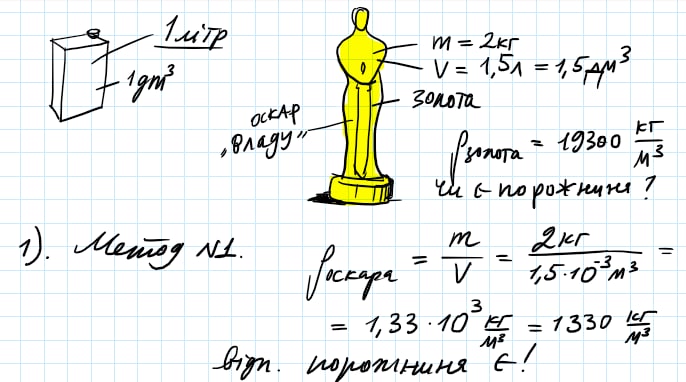 1 літр
1 дm³
m = 2кг
V = 1,5л = 1,5дм³
золота
оскар
„Владу"
ρзолота = 19300 кг/м³
чи є порожнина?
1). Метод №1.
ρоскара = m/V = 2кг/1,5·10⁻³м³ =
= 1,33·10³ кг/м³ = 1330 кг/м³
відп. порожнина є!